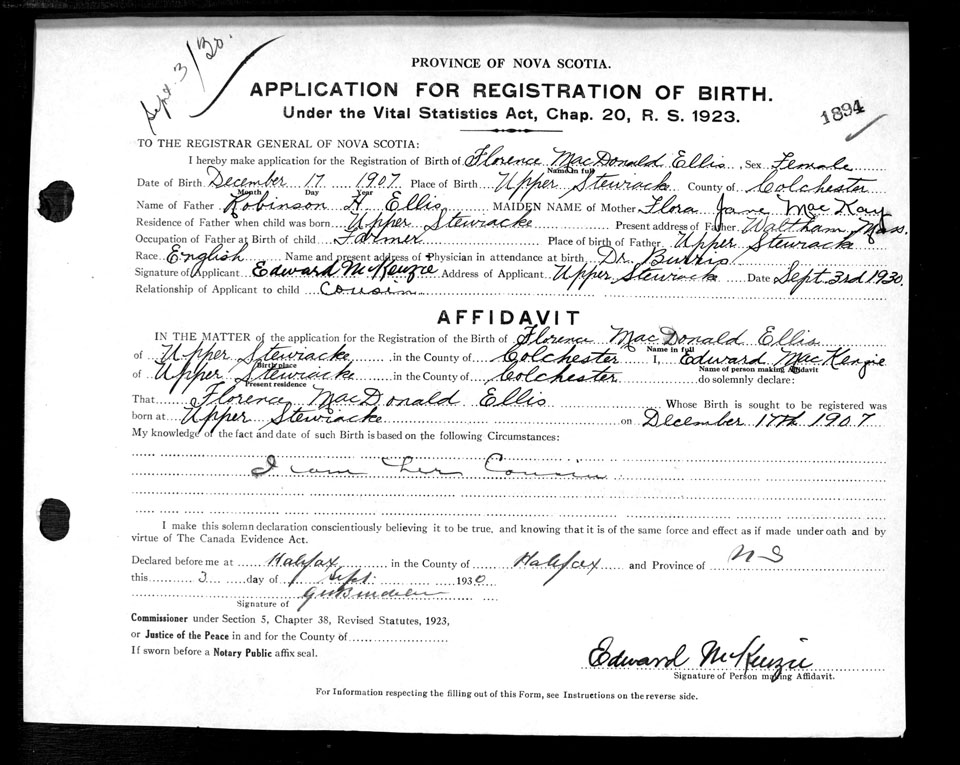 Sept. 3/30.
PROVINCE OF NOVA SCOTIA.
APPLICATION FOR REGISTRATION OF BIRTH.
Under the Vital Statistics Act, Chap. 20, R. S. 1923.
1894
TO THE REGISTRAR GENERAL OF NOVA SCOTIA:
I hereby make application for the Registration of Birth of Florence MacDonald Ellis, Sex Female
Name in full
Date of Birth December 17 1907 Place of Birth Upper Stewiacke County of Colchester
Month Day Year
Name of Father Robinson H. Ellis MAIDEN NAME of Mother Flora Jane MacKay
Residence of Father when child was born Upper Stewiacke Present address of Father Waltham, Mass.
Occupation of Father at Birth of child Farmer Place of birth of Father Upper Stewiacke
Race English Name and present address of Physician in attendance at birth Dr. Burris
Signature of Applicant Edward McKenzie Address of Applicant Upper Stewiacke Date Sept. 3rd 1930.
Relationship of Applicant to child cousin
AFFIDAVIT
IN THE MATTER of the application for the Registration of the Birth of Florence MacDonald Ellis
Name in full
of Upper Stewiacke in the County of Colchester I, Edward MacKenzie
Birth place Name of person making Affidavit
of Upper Stewiacke in the County of Colchester do solemnly declare:
Present residence
That Florence MacDonald Ellis Whose Birth is sought to be registered was
born at Upper Stewiacke on December 17th 1907
My knowledge of the fact and date of such Birth is based on the following Circumstances:
I am her Cousin
I make this solemn declaration conscientiously believing it to be true, and knowing that it is of the same force and effect as if made under oath and by
virtue of The Canada Evidence Act.
Declared before me at Halifax in the County of Halifax and Province of NS
this 3 day of Sept. 1930
Signature of
Commissioner under Section 5, Chapter 38, Revised Statutes, 1923,
or Justice of the Peace in and for the County of
If sworn before a Notary Public affix seal.
Edward McKenzie
Signature of Person making Affidavit.
For Information respecting the filling out of this Form, see Instructions on the reverse side.